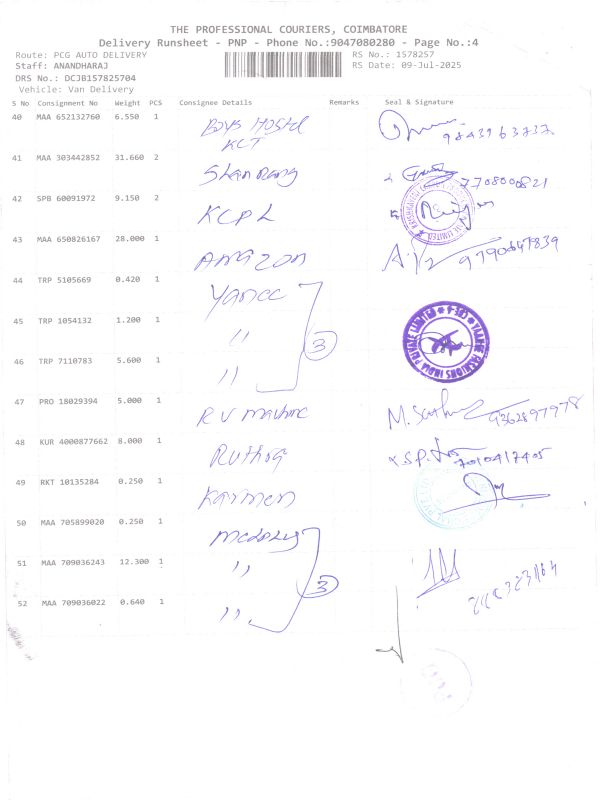 THE PROFESSIONAL COURIERS, COIMBATORE
Delivery Runsheet - PNP - Phone No.:9047080280 - Page No.:4
Route: PCG AUTO DELIVERY
Staff: ANANDHARAJ
DRS No.: DCJB157825704
Vehicle: Van Delivery
RS No.: 1578257
RS Date: 09-Jul-2025
S No Consignment No Weight PCS Consignee Details Remarks Seal & Signature
40 MAA 652132760 6.550 1 Boys Hostel
KCT 9843963737
41 MAA 303442852 31.660 2 7708000821
42 SPB 60091972 9.150 2 KCPL
43 MAA 650826167 28.000 1 Amazon 9790647839
44 TRP 5105669 0.420 1 Yanee
45 TRP 1054132 1.200 1 ,, 3
YAANE FASHIONS INDIA PRIVATE LIMITED
46 TRP 7110783 5.600 1 ,,
47 PRO 18029394 5.000 1 RV machine 9362897978
48 KUR 4000877662 8.000 1 S.P. 7010417405
49 RKT 10135284 0.250 1 Karmen
50 MAA 705899020 0.250 1
51 MAA 709036243 12.300 1 ,, 3
52 MAA 709036022 0.640 1 ,,